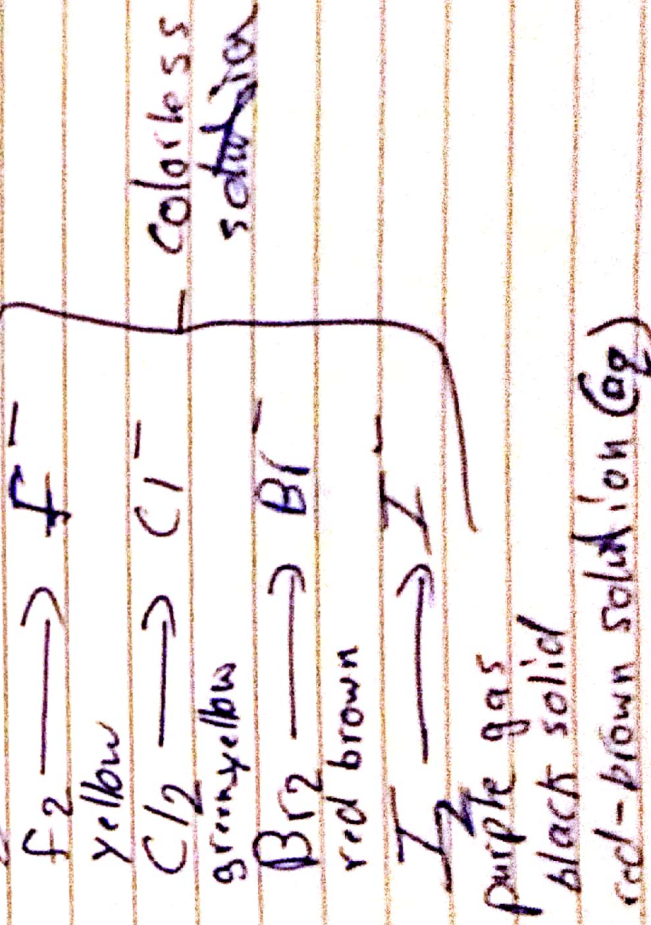 f2 → f⁻
yellow
Cl2 → Cl⁻
greenyellow
Br2 → Br⁻
red brown
I2 → I⁻
purple gas
black solid
red-brown solution (aq)
Colorless
solution